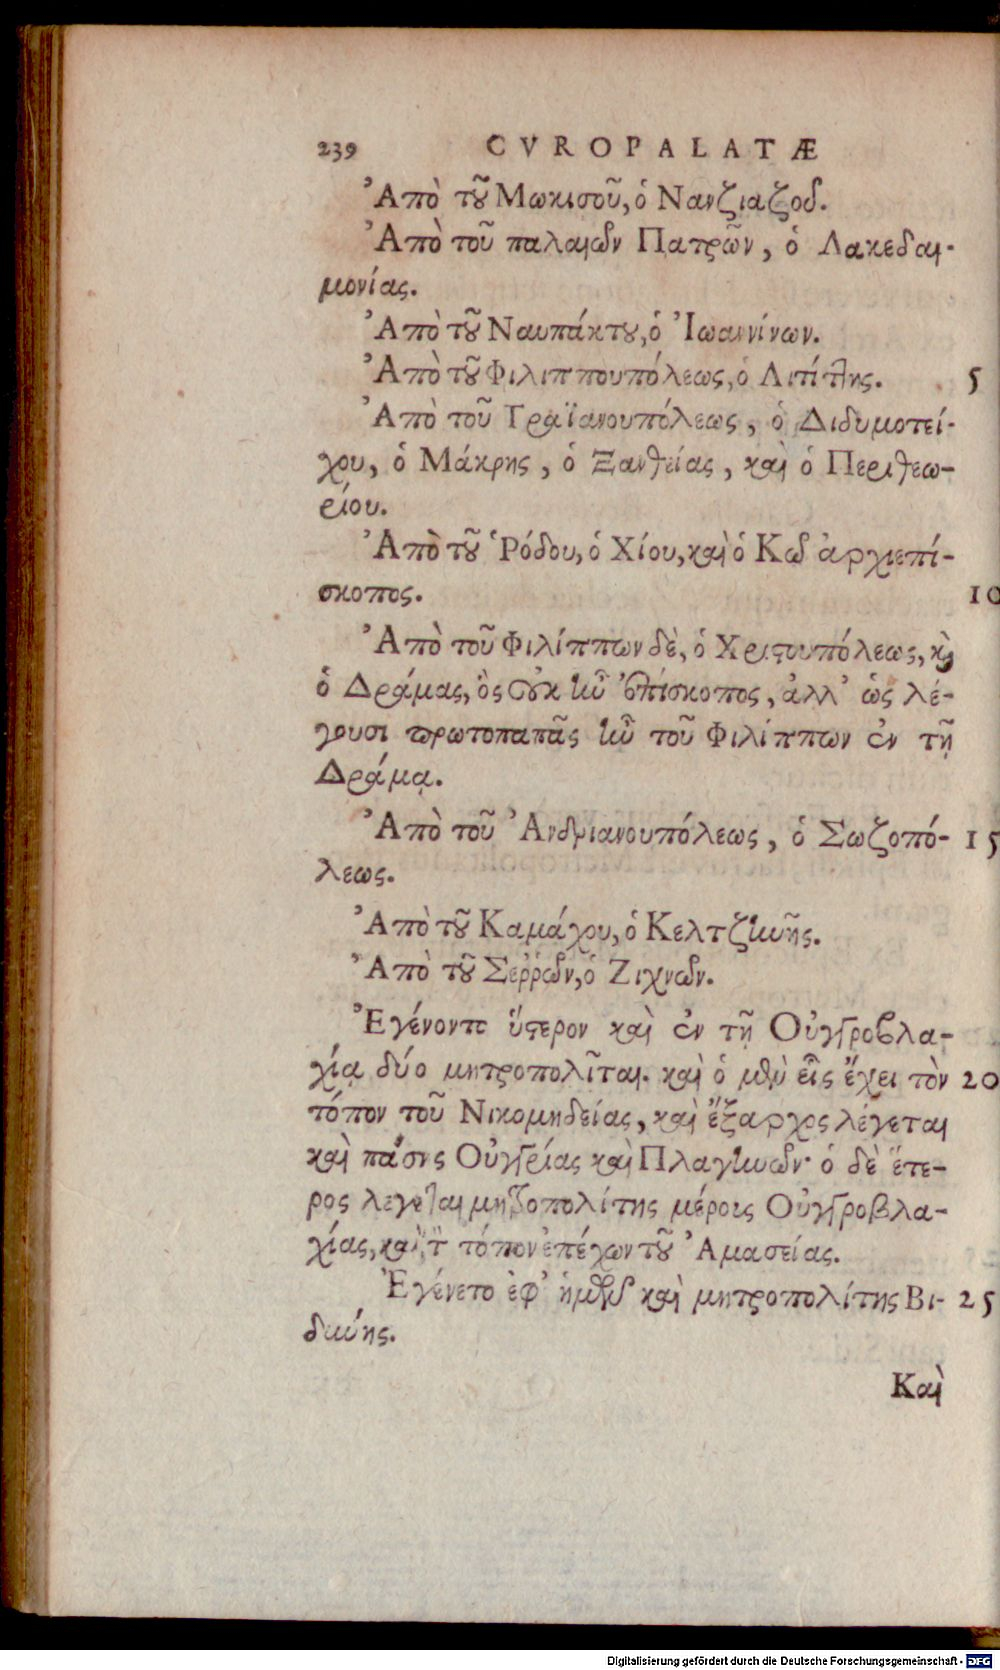 239 CVROPALATÆ
Ἀπὸ τοῦ Μωκισοῦ, ὁ Νανζιαζοῦ.
Ἀπὸ τοῦ παλαιῶν Πατρῶν, ὁ Λακεδαι-
μονίας.
Ἀπὸ τοῦ Ναυπάκτου, ὁ Ἰωαννίνων.
Ἀπὸ τοῦ Φιλιππουπόλεως, ὁ Λιτίτζης. 5
Ἀπὸ τοῦ Τραϊανουπόλεως, ὁ Διδυμοτεί-
χου, ὁ Μάκρης, ὁ Ξανθείας, καὶ ὁ Περιθεω-
ρίου.
Ἀπὸ τοῦ Ῥόδου, ὁ Χίου, καὶ ὁ Κῶ ἀρχιεπί-
σκοπος. 10
Ἀπὸ τοῦ Φιλίππων δὲ, ὁ Χριστουπόλεως, καὶ
ὁ Δράμας, ὃς οὐκ ἦν ἐπίσκοπος, ἀλλ’ ὡς λέ-
γουσι πρωτοπαπᾶς ἦν τοῦ Φιλίππων ἐν τῇ
Δράμᾳ.
Ἀπὸ τοῦ Ἀνδριανουπόλεως, ὁ Σωζοπό- 15
λεως.
Ἀπὸ τοῦ Καμάχου, ὁ Κελτζηνῆς.
Ἀπὸ τοῦ Σεῤῥῶν, ὁ Ζιχνῶν.
Ἐγένοντο ὕστερον καὶ ἐν τῇ Οὐγγροβλα-
χίᾳ δύο μητροπολῖται. καὶ ὁ μὲν εἷς ἔχει τὸν 20
τόπον τοῦ Νικομηδείας, καὶ ἔξαρχος λέγεται
καὶ πάσης Οὐγγρίας καὶ Πλαγηνῶν· ὁ δὲ ἕτε-
ρος λέγεται μητροπολίτης μέρους Οὐγγροβλα-
χίας, καὶ τὸν τόπον ἐπέχων τοῦ Ἀμασείας.
Ἐγένετο ἐφ’ ἡμῶν καὶ μητροπολίτης Βι- 25
δύνης.
Καὶ
Digitalisierung gefördert durch die Deutsche Forschungsgemeinschaft - DFG